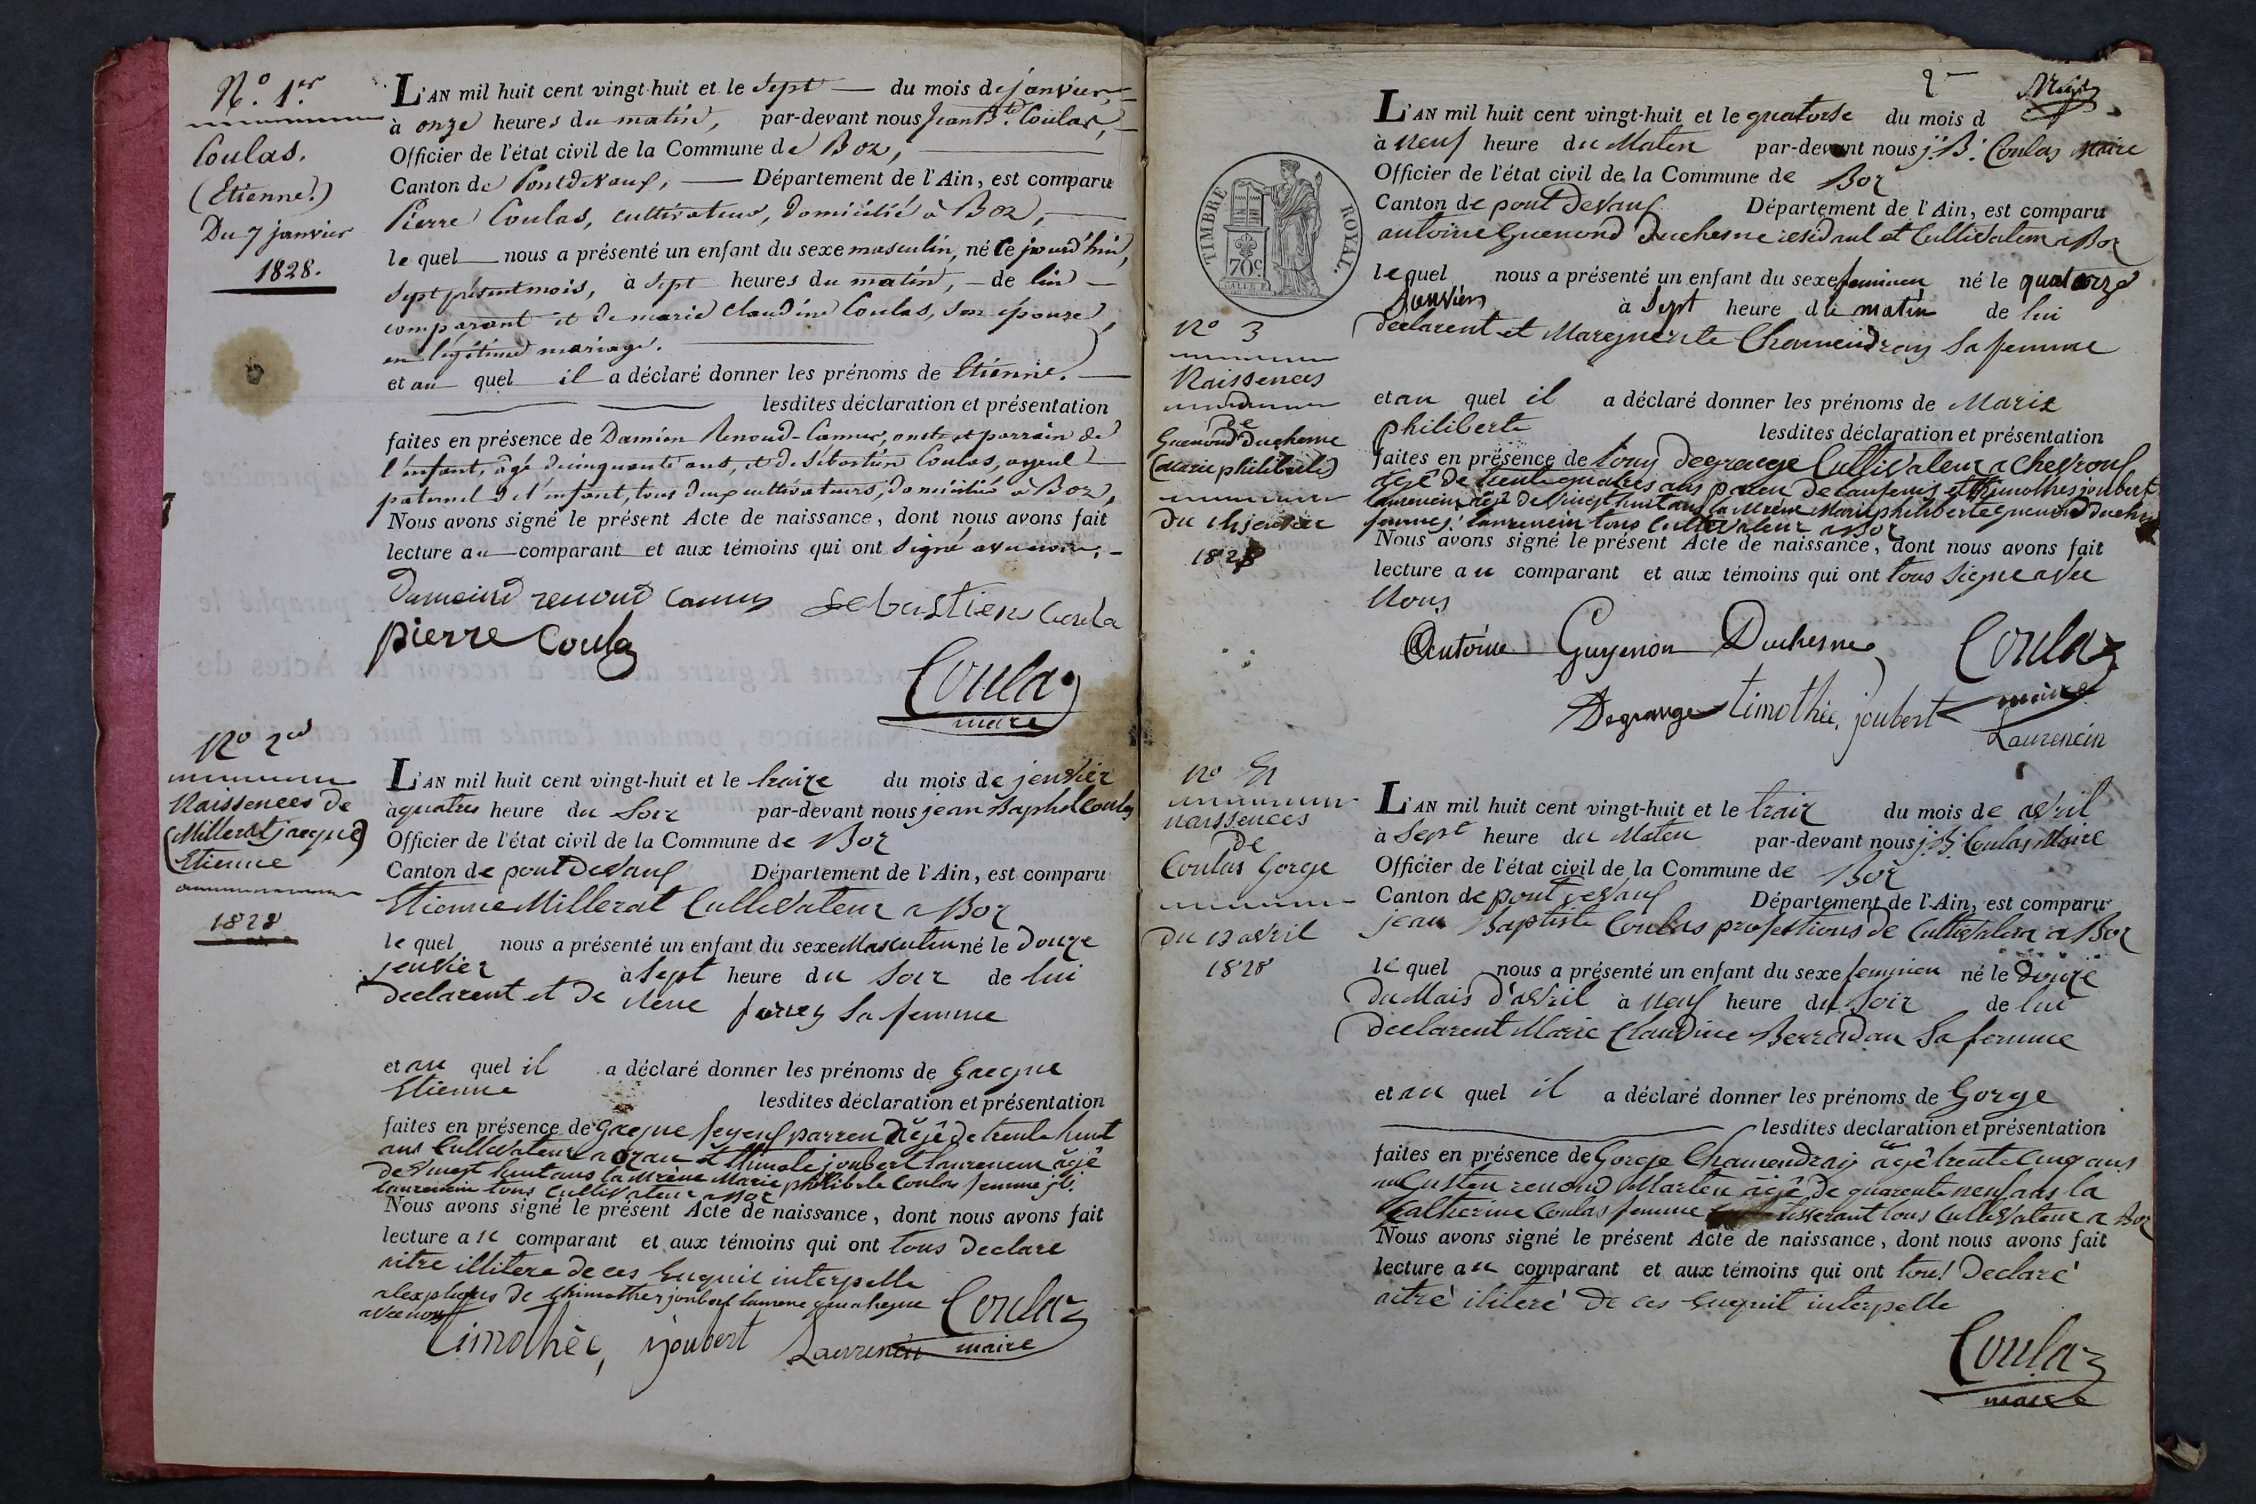 N.o 1.er
Coulas.
(Etienne.)
Du 7 janvier
1828.
L'AN mil huit cent vingt-huit et le sept du mois de janvier,
à onze heures du matin, par-devant nous Jean B.te Coulas,
Officier de l'état civil de la Commune de Boz,
Canton de Pontdevaux, Département de l'Ain, est comparu
Pierre Coulas, cultivateur, domicilié à Boz,
le quel nous a présenté un enfant du sexe masculin, né ce jourd'hui,
sept présent mois, à sept heures du matin, de lui
comparant et de marie Claudine Coulas, son épouse,
en légitime mariage.
et au quel il a déclaré donner les prénoms de Etienne.
lesdites déclaration et présentation
faites en présence de Damien Renoud-Camus, oncle et parrain de
l'enfant, âgé de cinquante ans, et de Sébastien Coulas, ayeul
paternel de l'enfant, tous deux cultivateurs, domiciliés à Boz,
Nous avons signé le présent Acte de naissance, dont nous avons fait
lecture au comparant et aux témoins qui ont signé avec nous,
Dameind renoud camus sebastiens Coula
pierre Coulas
Coulas
maire
No 2
Naissences de
(Millerat jacque)
Etienne
1828
L'AN mil huit cent vingt-huit et le traize du mois de jenvier
à quatres heure du soir par-devant nous jean Baptist Coulas
Officier de l'état civil de la Commune de Boz
Canton de pont Devaux Département de l'Ain, est comparu
Etienne Millerat Cultivateur a Boz
le quel nous a présenté un enfant du sexe Masculin né le Douze
jenvier à sept heure du soir de lui
declarent et de sa femme
et au quel il a déclaré donner les prénoms de Gacque
Etienne
lesdites déclaration et présentation
faites en présence de Gacque parren âgê de trente huit
ans Cultivateur a ozan et thimote joubert laurencin âgê
de vingt huit ans la Mrène Marie philiberte Coulas femme
laurencin tous Cultivateur a Boz
Nous avons signé le présent Acte de naissance, dont nous avons fait
lecture au comparant et aux témoins qui ont tous Declare
aitre illitere de ces Enquit interpelle
de thimothe joubert
avec nous
timothèe, joubert Laurencin
Coulas
maire
2
L'AN mil huit cent vingt-huit et le quatorse du mois d
à neuf heure du Maten par-devant nous j. B. Coulas Maire
Officier de l'état civil de la Commune de Boz
Canton de pont Devaux Département de l'Ain, est comparu
antoine Guenond Duchesne residant et Cultivateur a Boz
TIMBRE ROYAL.
70c
le quel nous a présenté un enfant du sexe feminien né le quatorze
Janvier à Sept heure du matin de lui
declarent et Marguerite Chamendray sa femme
No 3
Naissences
De
Guenond Duchesne
(Marie philiberte)
du 14 jenvier
1828
et au quel il a déclaré donner les prénoms de Marie
philiberte
lesdites déclaration et présentation
faites en présence de tony degrange Cultivateur a Chevroux
âgê de trente quatres ans et thimothes joubert
laurencin âgê de vingt huit ans la Mrène Marie philiberte Guenond duchesne
femme j. laurencin tous Cultivateur a Boz
Nous avons signé le présent Acte de naissance, dont nous avons fait
lecture au comparant et aux témoins qui ont tous signe avec
Nous
Antoine Guyenon Duchesne
Coulas
maire
Degrange timothèe, joubert
Laurencin
No 4
naissences
De
Coulas Gorge
du 13 avril
1828
L'AN mil huit cent vingt-huit et le traiz du mois de avril
à Sept heure du Maten par-devant nous j. B. Coulas Maire
Officier de l'état civil de la Commune de Boz
Canton de pont devaux Département de l'Ain, est comparu
jean Baptiste Coulas professtions de Cultivateur a Boz
le quel nous a présenté un enfant du sexe feminien né le Douze
du Mais d'avril à neuf heure du soir de lui
declarent Marie Claudine Berradan sa femme
et au quel il a déclaré donner les prénoms de Gorge
lesdites declaration et présentation
faites en présence de Gorge Chamendray âgê trente cinq ans
augusten renoud Marten âgê de quarente neuf ans la
Catherine Coulas femme tisserant tous Cultivateur a Boz
Nous avons signé le présent Acte de naissance, dont nous avons fait
lecture au comparant et aux témoins qui ont tous Declaré
aitré iliteré De ces Enquit interpelle
Coulas
maire